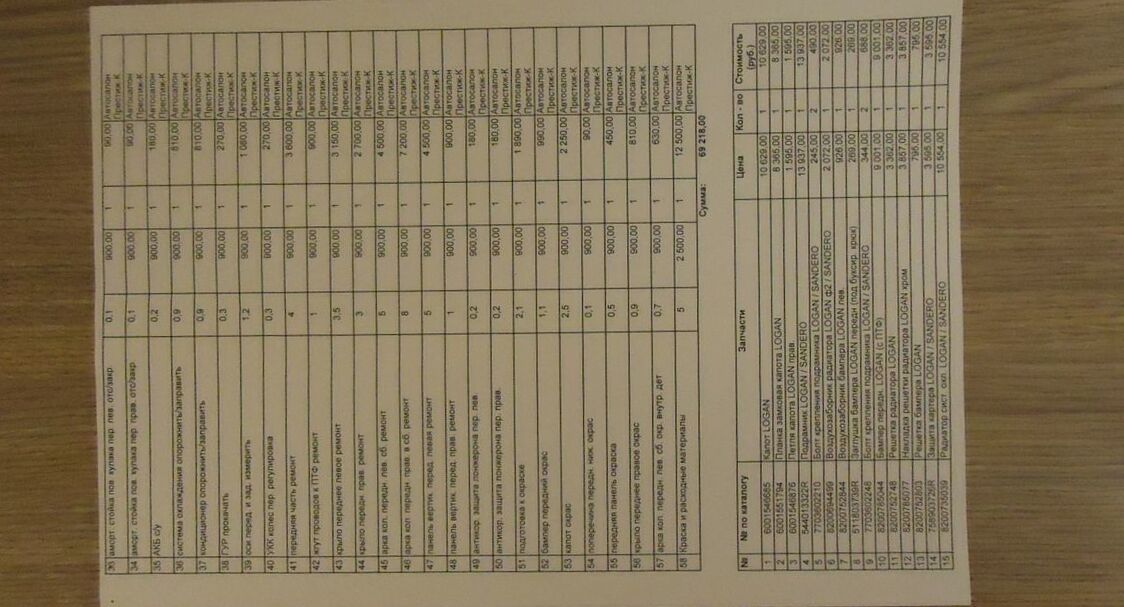 33 аморт. стойка пов. кулака пер. лев. отс/закр 0,1 900,00 1 90,00 Автосалон Престиж-К
34 аморт. стойка пов. кулака пер. прав. отс/закр 0,1 900,00 1 90,00 Автосалон Престиж-К
35 АКБ с/у 0,2 900,00 1 180,00 Автосалон Престиж-К
36 система охлаждения опорожнить/заправить 0,9 900,00 1 810,00 Автосалон Престиж-К
37 кондиционер опорожнить/заправить 0,9 900,00 1 810,00 Автосалон Престиж-К
38 ГУР прокачать 0,3 900,00 1 270,00 Автосалон Престиж-К
39 оси перед. и зад. измерить 1,2 900,00 1 1 080,00 Автосалон Престиж-К
40 УКК колес пер. регулировка 0,3 900,00 1 270,00 Автосалон Престиж-К
41 передняя часть ремонт 4 900,00 1 3 600,00 Автосалон Престиж-К
42 жгут проводов к ПТФ ремонт 1 900,00 1 900,00 Автосалон Престиж-К
43 крыло переднее левое ремонт 3,5 900,00 1 3 150,00 Автосалон Престиж-К
44 крыло передн. прав. ремонт 3 900,00 1 2 700,00 Автосалон Престиж-К
45 арка кол. передн. лев. в сб. ремонт 5 900,00 1 4 500,00 Автосалон Престиж-К
46 арка кол. передн. прав. в сб. ремонт 8 900,00 1 7 200,00 Автосалон Престиж-К
47 панель вертик. перед. левая ремонт 5 900,00 1 4 500,00 Автосалон Престиж-К
48 панель вертик. перед. прав. ремонт 1 900,00 1 900,00 Автосалон Престиж-К
49 антикор. защита лонжерона пер. лев. 0,2 900,00 1 180,00 Автосалон Престиж-К
50 антикор. защита лонжерона пер. прав. 0,2 900,00 1 180,00 Автосалон Престиж-К
51 подготовка к окраске 2,1 900,00 1 1 890,00 Автосалон Престиж-К
52 бампер передний окрас 1,1 900,00 1 990,00 Автосалон Престиж-К
53 капот окрас 2,5 900,00 1 2 250,00 Автосалон Престиж-К
54 поперечина передн. ниж. окрас 0,1 900,00 1 90,00 Автосалон Престиж-К
55 передняя панель окраска 0,5 900,00 1 450,00 Автосалон Престиж-К
56 крыло переднее правое окрас 0,9 900,00 1 810,00 Автосалон Престиж-К
57 арка кол. передн. лев. сб. окр. внутр. дет 0,7 900,00 1 630,00 Автосалон Престиж-К
58 Краска и расходные материалы 5 2 500,00 1 12 500,00 Автосалон Престиж-К
Сумма: 69 218,00
№ № по каталогу Запчасти Цена Кол - во Стоимость (руб.)
1 6001546685 Капот LOGAN 10 629,00 1 10 629,00
2 6001551794 Планка замковая капота LOGAN 8 365,00 1 8 365,00
3 6001546876 Петля капота LOGAN прав. 1 595,00 1 1 595,00
4 544013322R Подрамник LOGAN / SANDERO 13 937,00 1 13 937,00
5 7703602210 Болт крепления подрамника LOGAN / SANDERO 245,00 2 490,00
6 8200694499 Воздухозаборник радиатора LOGAN ф2 / SANDERO 2 072,00 1 2 072,00
7 8200752844 Воздухозаборник бампера LOGAN лев. 926,00 1 926,00
8 511803739R Заглушка бампера LOGAN передн (под буксир. крюк) 269,00 1 269,00
9 7703602248 Болт крепления подрамника LOGAN / SANDERO 344,00 2 688,00
10 8200785044 Бампер передн. LOGAN (с ПТФ) 9 001,00 1 9 001,00
11 8200752748 Решетка радиатора LOGAN 3 362,00 1 3 362,00
12 8200785077 Накладка решетки радиатора LOGAN хром 3 857,00 1 3 857,00
13 8200752803 Решетка бампера LOGAN 795,00 1 795,00
14 758903726R Защита картера LOGAN / SANDERO 3 595,00 1 3 595,00
15 8200735039 Радиатор сист. охл. LOGAN / SANDERO 10 554,00 1 10 554,00